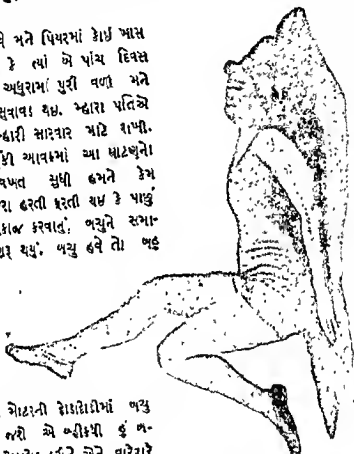 વે મને પિયરમાં કાંઈ ખાસ
કે ત્યાં બે પાંચ દિવસ
અધુરામાં પુરી વળી મને
સુવાવડ થઇ. મ્હારા પતિએ
મ્હારી સારવાર માટે રાખી.
કી આવકમાં આ ઘાટણના
વખત સુધી હમને કેમ
રા હરતી ફરતી થઇ કે પાછું
કાજ કરવાનું. બચુને સમા-
શરૂ થયું. બચુ હવે તો બહુ
મોટરની દોડાદોડીમાં બચુ
જશે એ બ્હીકથી હું બ-
એને વારેવારે